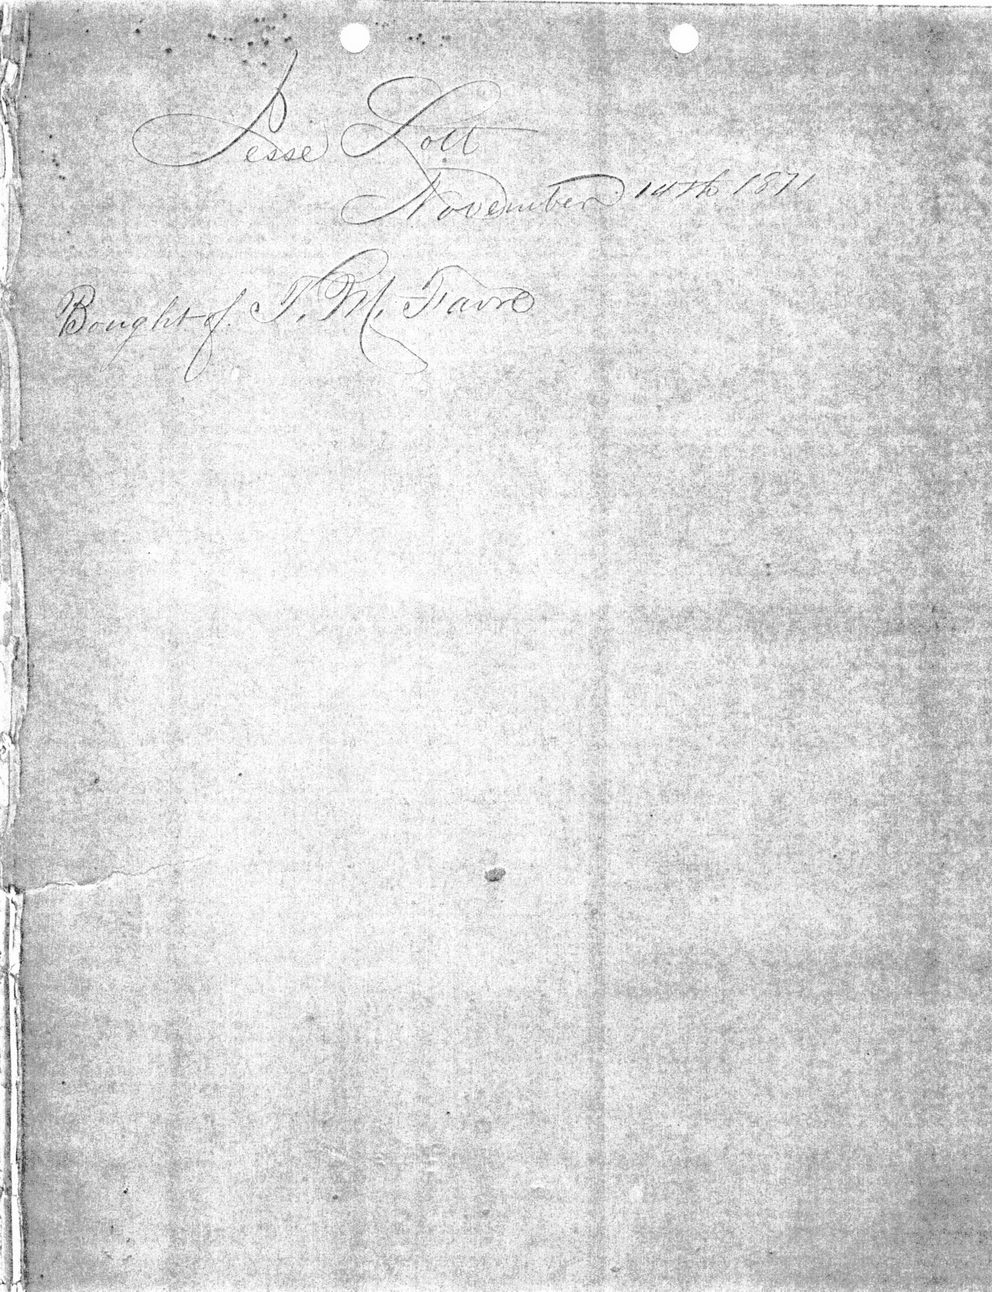 Jesse Lott
November 14th 1871
Bought of T. M. Favre